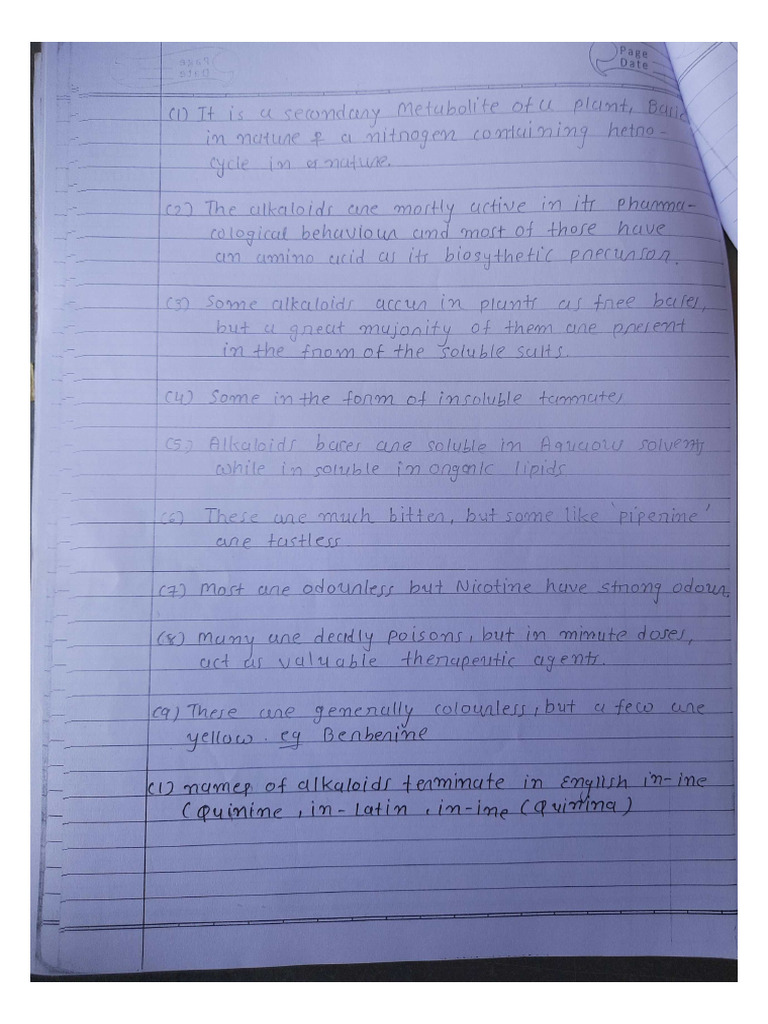 Page
Date
(1) It is a secondary Metabolite of a plant, Basic
in nature & a nitrogen containing hetro-
cycle in nature.
(2) The alkaloids are mostly active in its Pharma-
cological behaviour and most of those have
an amino acid as its biosythetic precursor.
(3) Some alkaloids accur in plants as free bases,
but a great majority of them are present
in the from of the soluble salts.
(4) Some in the form of insoluble tannates
(5) Alkaloids bases are soluble in Aquaous solvents
while in soluble in organic lipids
(6) These are much bitter, but some like 'piperine'
are tastless
(7) Most are odourless but Nicotine have strong odour.
(8) Many are deadly poisons, but in minute doses,
act as valuable therapeutic agents.
(9) These are generally colourless, but a few are
yellow. eg Berberine
(1) names of alkaloids terminate in English in-ine
(Quinine, in-Latin, in-ine (Quinina)